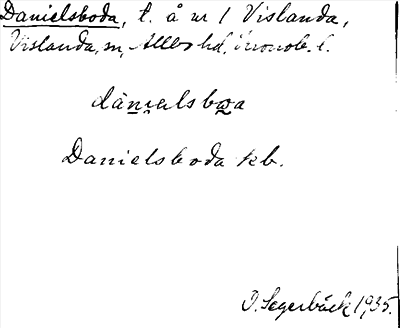 Danielsboda, t. å nr 1 Vislanda,
Vislanda, sn, Allbo hd, Kronob. l.
dàni̯alsbo̯a
Danielsboda kb.
O. Segerbäck 1935.